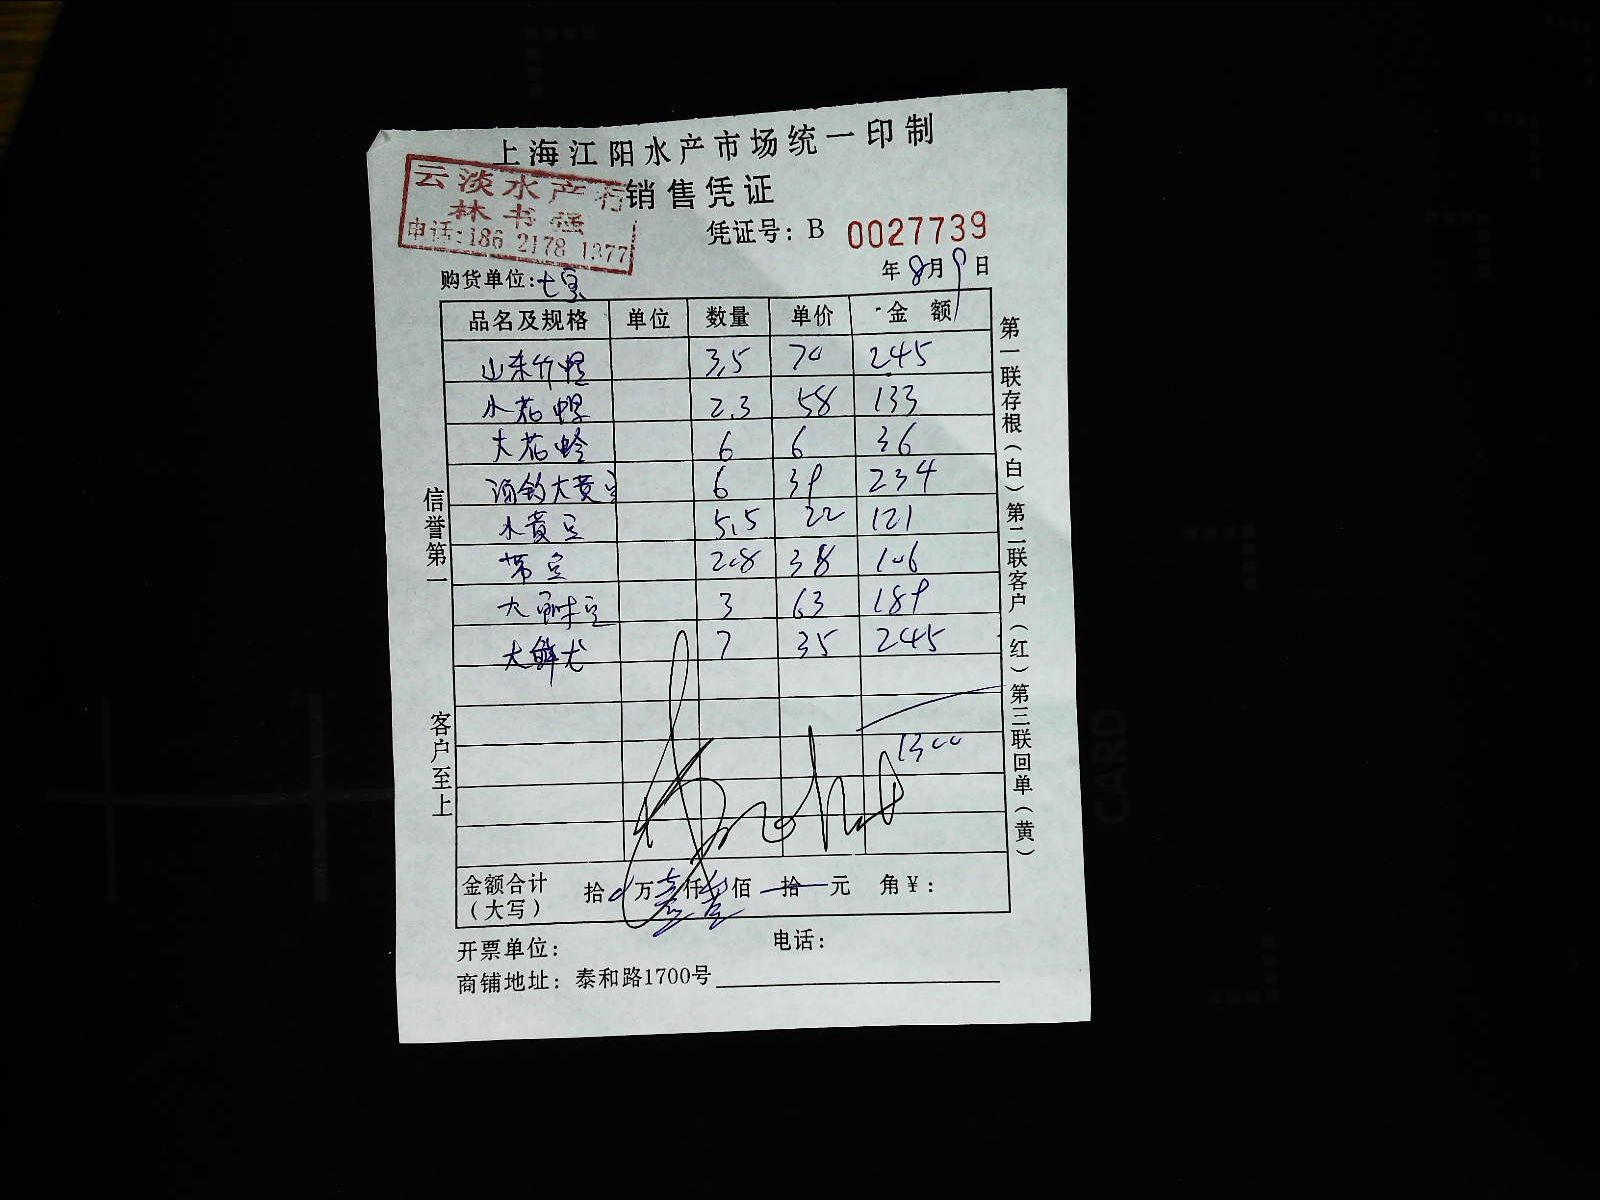 上海江阳水产市场统一印制
云淡水产行
林书强
电话:186 2178 1377
销售凭证
凭证号: B 0027739
购货单位:七宝 年8月9日
品名及规格 单位 数量 单价 金额
山东竹蛏 3.5 70 245
小花 2.3 58 133
大花蛤 6 6 36
大黄 6 39 234
小黄豆 5.5 22 121
带豆 2.8 38 106
大 豆 3 63 189
大鲜尤 7 35 245
1300
金额合计(大写) 拾0万壹仟叁佰拾元 角¥:
开票单位: 电话:
商铺地址: 泰和路1700号
信誉第一
客户至上
第一联存根(白)第二联客户(红)第三联回单(黄)
CARD